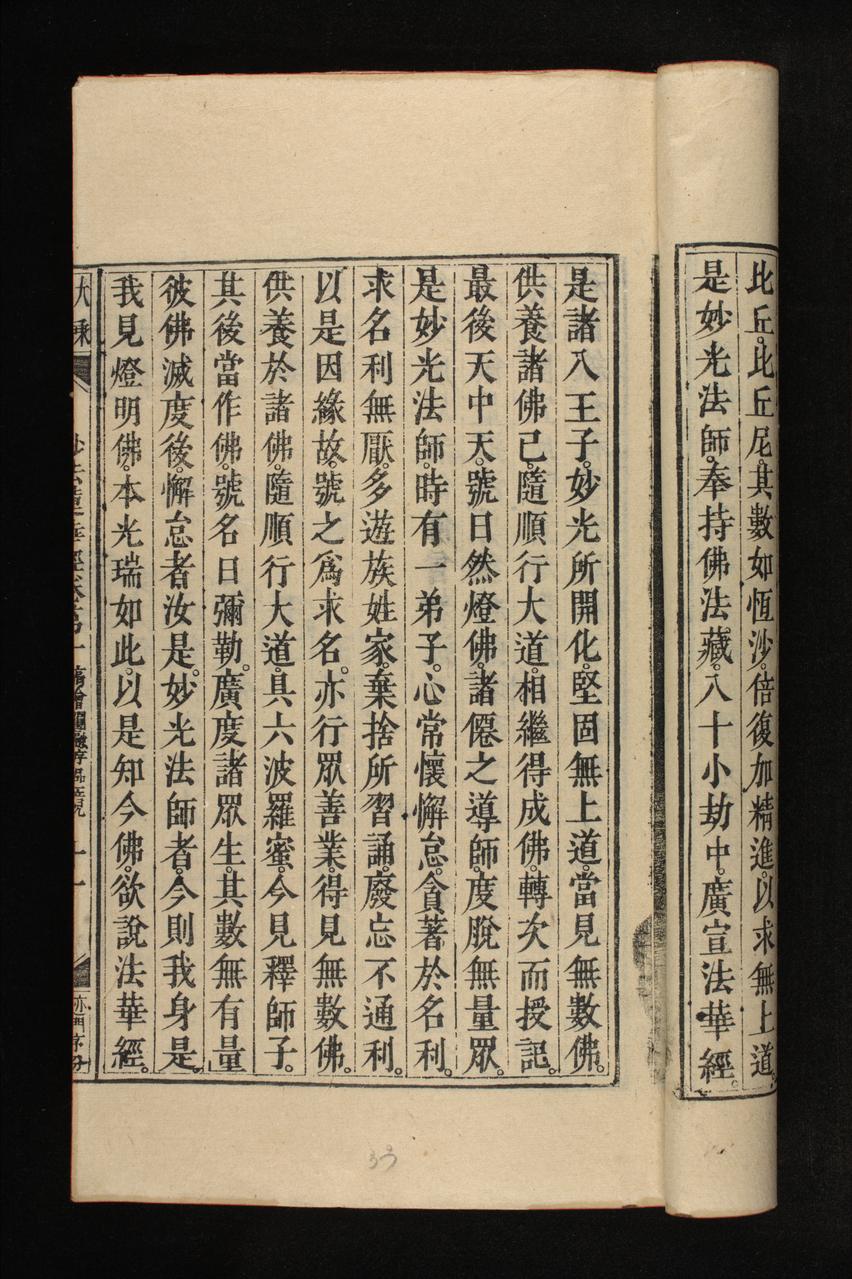 比丘。比丘尼。其數如恆沙。倍復加精進。以求無上道
是妙光法師。奉持佛法藏。八十小劫中。廣宣法華經。
是諸八王子。妙光所開化。堅固無上道。當見無數佛。
供養諸佛已。隨順行大道。相繼得成佛。轉次而授記。
最後天中天。號曰然燈佛。諸僊之導師。度脫無量眾。
是妙光法師。時有一弟子。心常懷懈怠。貪著於名利。
求名利無厭。多遊族姓家。棄捨所習誦。廢忘不通利。
以是因緣故。號之爲求名。亦行眾善業。得見無數佛。
供養於諸佛。隨順行大道。具六波羅蜜。今見釋師子。
其後當作佛。號名曰彌勒。廣度諸眾生。其數無有量
彼佛滅度後。懈怠者汝是。妙光法師者。今則我身是。
我見燈明佛。本光瑞如此。以是知今佛。欲說法華經。
妙法蓮華經卷第一
十一